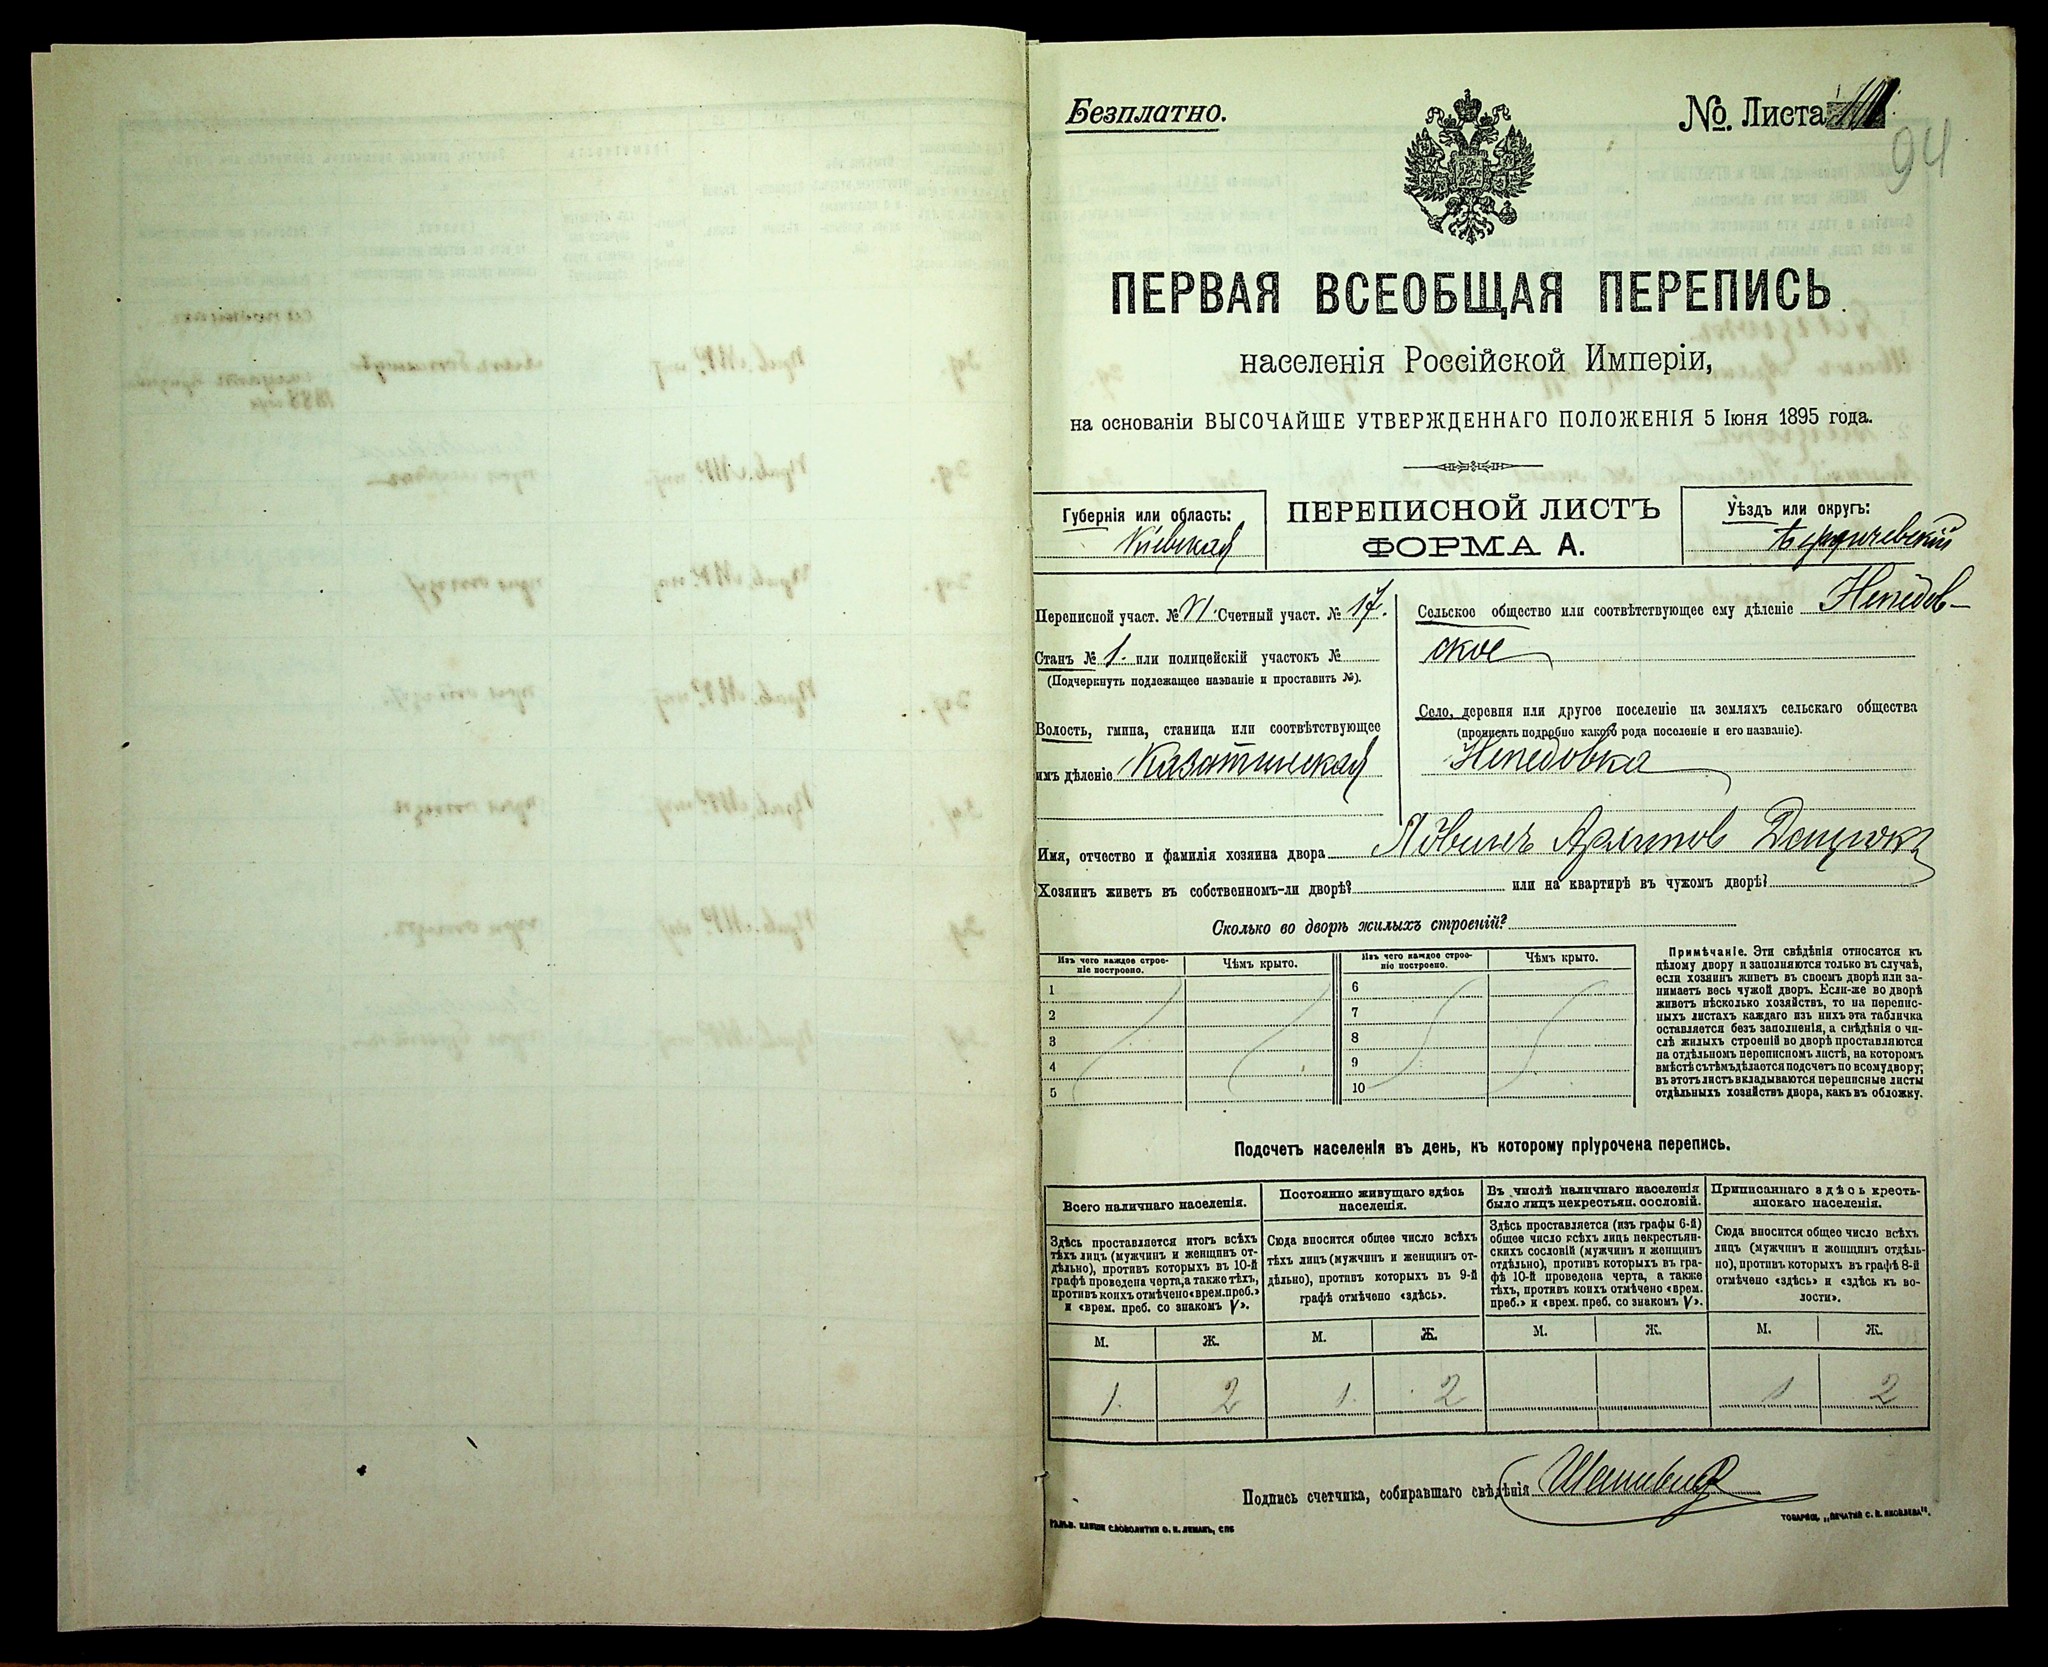 Безплатно.
№ Листа
94
ПЕРВАЯ ВСЕОБЩАЯ ПЕРЕПИСЬ
населенія Россійской Имперіи,
на основаніи ВЫСОЧАЙШЕ УТВЕРЖДЕННАГО ПОЛОЖЕНІЯ 5 Іюня 1895 года.
Губернія или область:
Кіевская
ПЕРЕПИСНОЙ ЛИСТЪ
ФОРМА А.
Уѣздъ или округъ:
Бердичевскій
Переписной участ. № VI Счетный участ. № 17.
Станъ № 1. или полицейскій участокъ №
(Подчеркнуть подлежащее названіе и проставить №).
Волость, гмина, станица или соотвѣтствующее
имъ дѣленіе Казатинская
Сельское общество или соотвѣтствующее ему дѣленіе Непедов-
ское
Село, деревня или другое поселеніе на земляхъ сельскаго общества
(прописать подробно какого рода поселеніе и его названіе).
Непедовка
Имя, отчество и фамилія хозяина двора Архипов
Хозяинъ живетъ въ собственномъ-ли дворѣ? или на квартирѣ въ чужомъ дворѣ?
Сколько во дворѣ жилыхъ строеній?
Изъ чего каждое строе-
ніе построено.
Чѣмъ крыто.
Изъ чего каждое строе-
ніе построено.
Чѣмъ крыто.
1
2
3
4
5
6
7
8
9
10
Примѣчаніе. Эти свѣдѣнія относятся къ
цѣлому двору и заполняются только въ случаѣ,
если хозяинъ живетъ въ своемъ дворѣ или за-
нимаетъ весь чужой дворъ. Если-же во дворѣ
живетъ нѣсколько хозяйствъ, то на перепис-
ныхъ листахъ каждаго изъ нихъ эта табличка
оставляется безъ заполненія, а свѣдѣнія о чи-
слѣ жилыхъ строеній во дворѣ проставляются
на отдѣльномъ переписномъ листѣ, на которомъ
вмѣстѣ съ тѣмъ дѣлается подсчетъ по всему двору;
въ этотъ листъ вкладываются переписные листы
отдѣльныхъ хозяйствъ двора, какъ въ обложку.
Подсчетъ населенія въ день, къ которому пріурочена перепись.
Всего наличнаго населенія.
Здѣсь проставляется итогъ всѣхъ
тѣхъ лицъ (мужчинъ и женщинъ от-
дѣльно), противъ которыхъ въ 10-й
графѣ проведена черта, а также тѣхъ,
противъ коихъ отмѣчено «врем. преб.»
и «врем. преб. со знакомъ V».
Постоянно живущаго здѣсь
населенія.
Сюда вносится общее число всѣхъ
тѣхъ лицъ (мужчинъ и женщинъ от-
дѣльно), противъ которыхъ въ 9-й
графѣ отмѣчено «здѣсь».
Въ числѣ наличнаго населенія
было лицъ некрестьян. сословій.
Здѣсь проставляется (изъ графы 6-й)
общее число всѣхъ лицъ некрестьян-
скихъ сословій (мужчинъ и женщинъ
отдѣльно), противъ которыхъ въ гра-
фѣ 10-й проведена черта, а также
тѣхъ, противъ коихъ отмѣчено «врем.
преб.» и «врем. преб. со знакомъ V».
Приписаннаго здѣсь кресть-
янскаго населенія.
Сюда вносится общее число всѣхъ
лицъ (мужчинъ и женщинъ отдѣль-
но), противъ которыхъ въ графѣ 8-й
отмѣчено «здѣсь» и «здѣсь къ во-
лости».
М. Ж. М. Ж. М. Ж. М. Ж.
1. 2 1. 2 1 2
Подпись счетчика, собиравшаго свѣдѣнія
ТОВАРИЩ. „ПЕЧАТНЯ С. П. ЯКОВЛЕВА“.